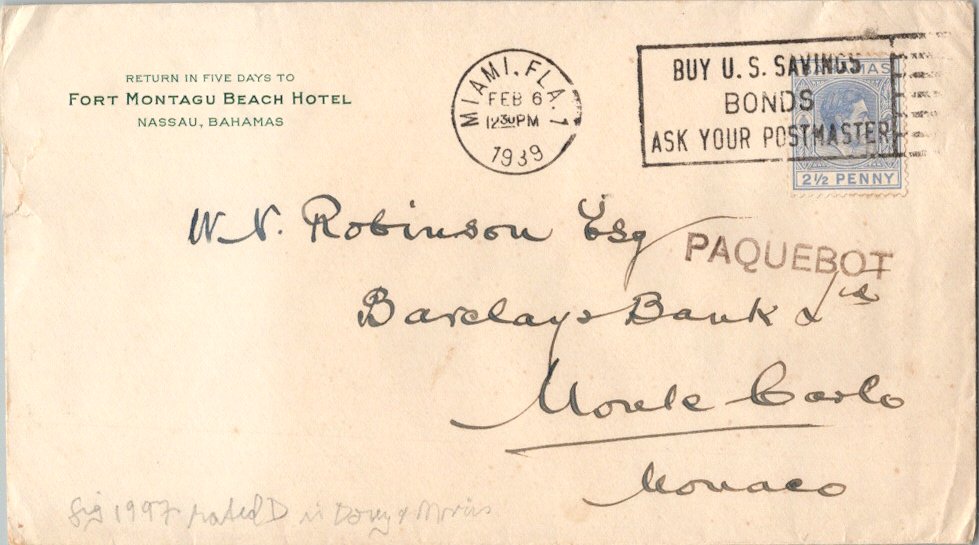 RETURN IN FIVE DAYS TO
FORT MONTAGU BEACH HOTEL
NASSAU, BAHAMAS
MIAMI, FLA. 1
FEB 6
12 30 PM
1939
BUY U.S. SAVINGS
BONDS
ASK YOUR POSTMASTER
BAHAMAS
2½ PENNY
W. N. Robinson Esq
PAQUEBOT
Barclays Bank Ltd
Monte Carlo
Monaco
fig 1997 rated D in